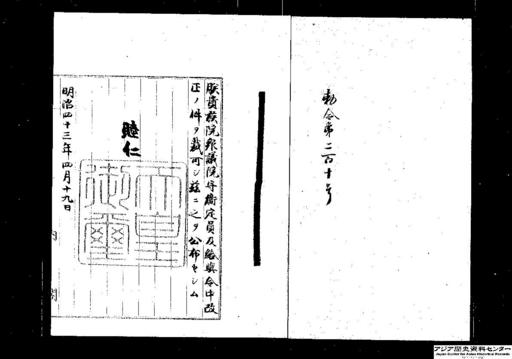 勅令第二百十号
朕貴族院衆議院守衛定員及給与令中改
正ノ件ヲ裁可シ茲ニ之ヲ公布セシム
睦仁
天皇御璽
明治四十三年四月十九日
内閣
アジア歴史資料センター
Japan Center for Asian Historical Records